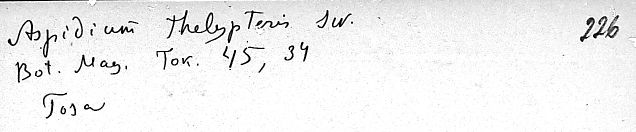 Aspidium Thelypteris Sw. 226
Bot. Mag. Tok. 45, 34
Tosa